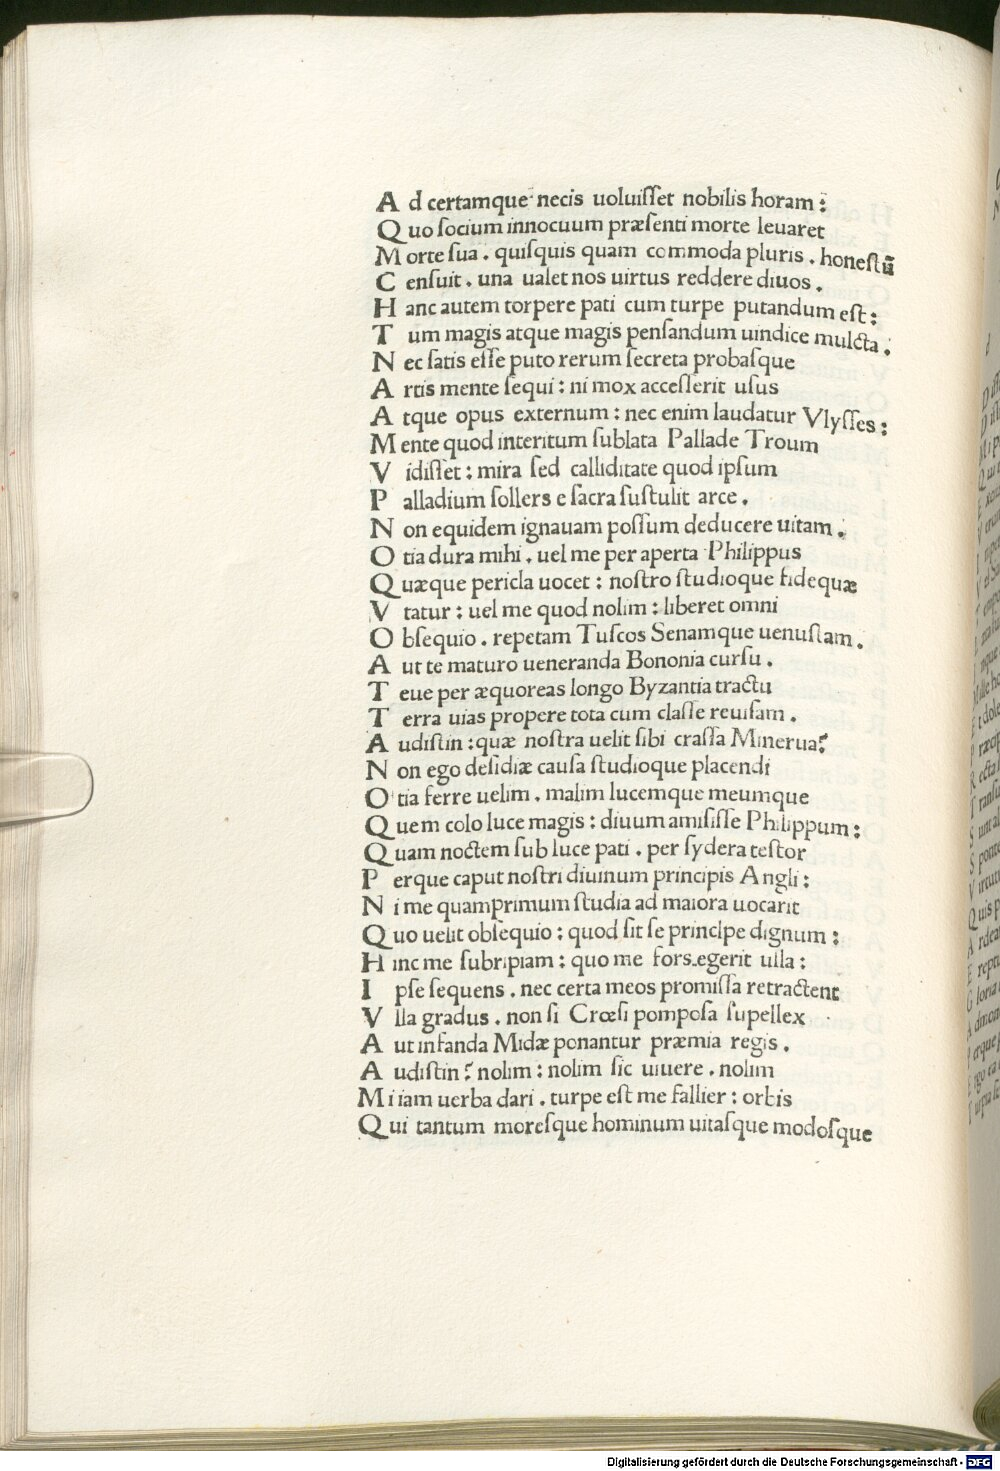 Ad certamque necis uoluiſſet nobilis horam:
Quo ſocium innocuum præſenti morte leuaret
Morte ſua. quiſquis quam commoda pluris. honeſtū
Cenſuit. una ualet nos uirtus reddere diuos.
Hanc autem torpere pati cum turpe putandum eſt:
Tum magis atque magis penſandum uindice mulcta.
Nec ſatis eſſe puto rerum ſecreta probaſque
Artis mente ſequi: ni mox acceſſerit uſus
Atque opus externum: nec enim laudatur Vlyſſes:
Mente quod interitum ſublata Pallade Troum
Vidiſſet: mira ſed calliditate quod ipſum
Palladium ſollers e ſacra ſuſtulit arce.
Non equidem ignauam poſſum deducere uitam.
Otia dura mihi. uel me per aperta Philippus
Quæque pericla uocet: noſtro ſtudioque fidequæ
Vtatur: uel me quod nolim: liberet omni
Obſequio. repetam Tuſcos Senamque uenuſtam.
Aut te maturo ueneranda Bononia curſu.
Teue per æquoreas longo Byzantia tractu
Terra uias propere tota cum claſſe reuiſam.
Audiſtin: quæ noſtra uelit ſibi craſſa Minerua?
Non ego deſidiæ cauſa ſtudioque placendi
Otia ferre uelim. malim lucemque meumque
Quem colo luce magis: diuum amiſiſſe Philippum:
Quam noctem ſub luce pati. per ſydera teſtor
Perque caput noſtri diuinum principis Angli:
Ni me quamprimum ſtudia ad maiora uocarit
Quo uelit obſequio: quod ſit ſe principe dignum:
Hinc me ſubripiam: quo me fors egerit ulla:
Ipſe ſequens. nec certa meos promiſſa retractent
Vlla gradus. non ſi Crœſi pompoſa ſupellex
Aut infanda Midæ ponantur præmia regis.
Audiſtin? nolim: nolim ſic uiuere. nolim
Mi iam uerba dari. turpe eſt me fallier: orbis
Qui tantum moreſque hominum uitaſque modoſque
Digitalisierung gefördert durch die Deutsche Forschungsgemeinschaft - DFG